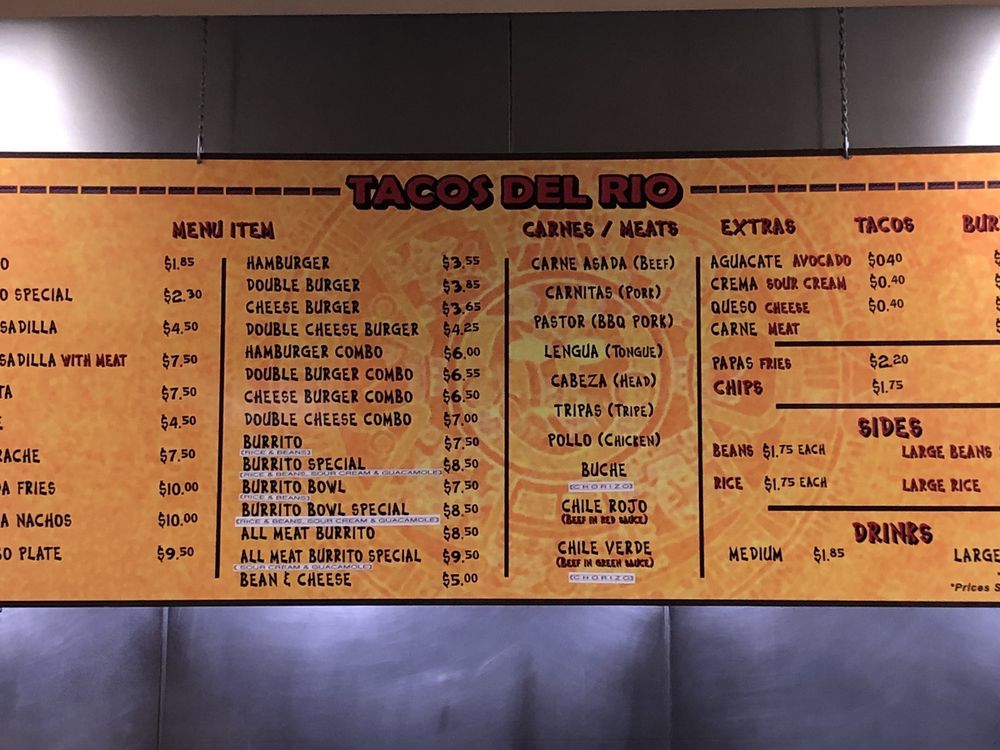 TACOS DEL RIO
MENU ITEM
O $1.85
O SPECIAL $2.30
SADILLA $4.50
SADILLA WITH MEAT $7.50
TA $7.50
E $4.50
RACHE $7.50
A FRIES $10.00
A NACHOS $10.00
O PLATE $9.50
HAMBURGER $3.55
DOUBLE BURGER $3.85
CHEESE BURGER $3.65
DOUBLE CHEESE BURGER $4.25
HAMBURGER COMBO $6.00
DOUBLE BURGER COMBO $6.55
CHEESE BURGER COMBO $6.50
DOUBLE CHEESE COMBO $7.00
BURRITO $7.50
(RICE & BEANS)
BURRITO SPECIAL $8.50
(RICE & BEANS, SOUR CREAM & GUACAMOLE)
BURRITO BOWL $7.50
(RICE & BEANS)
BURRITO BOWL SPECIAL $8.50
(RICE & BEANS, SOUR CREAM & GUACAMOLE)
ALL MEAT BURRITO $8.50
ALL MEAT BURRITO SPECIAL $9.50
(SOUR CREAM & GUACAMOLE)
BEAN & CHEESE $5.00
CARNES / MEATS
CARNE ASADA (BEEF)
CARNITAS (PORK)
PASTOR (BBQ PORK)
LENGUA (TONGUE)
CABEZA (HEAD)
TRIPAS (TRIPE)
POLLO (CHICKEN)
BUCHE
(CHORIZO)
CHILE ROJO
(BEEF IN RED SAUCE)
CHILE VERDE
(BEEF IN GREEN SAUCE)
(CHORIZO)
EXTRAS TACOS BUR
AGUACATE AVOCADO $040 $
CREMA SOUR CREAM $0.40 $
QUESO CHEESE $0.40 $
CARNE MEAT $
PAPAS FRIES $2.20
CHIPS $1.75
SIDES
BEANS $1.75 EACH LARGE BEANS
RICE $1.75 EACH LARGE RICE
DRINKS
MEDIUM $1.85 LARGE
*Prices S